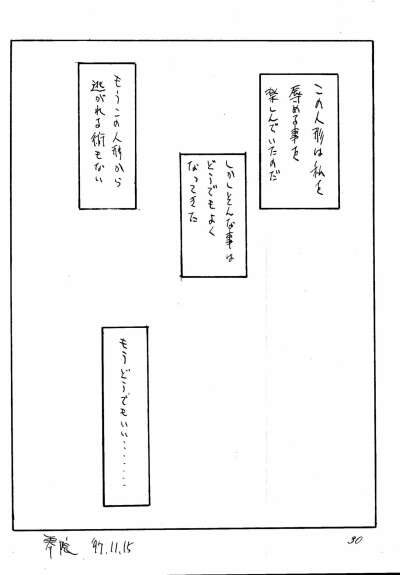 この人形は私を
辱める事を
楽しんでいたのだ
しかしそんな事は
どうでもよく
なってきた
もうこの人形から
逃がれる術もない
もうどうでもいい‥‥‥‥
97.11.15
30